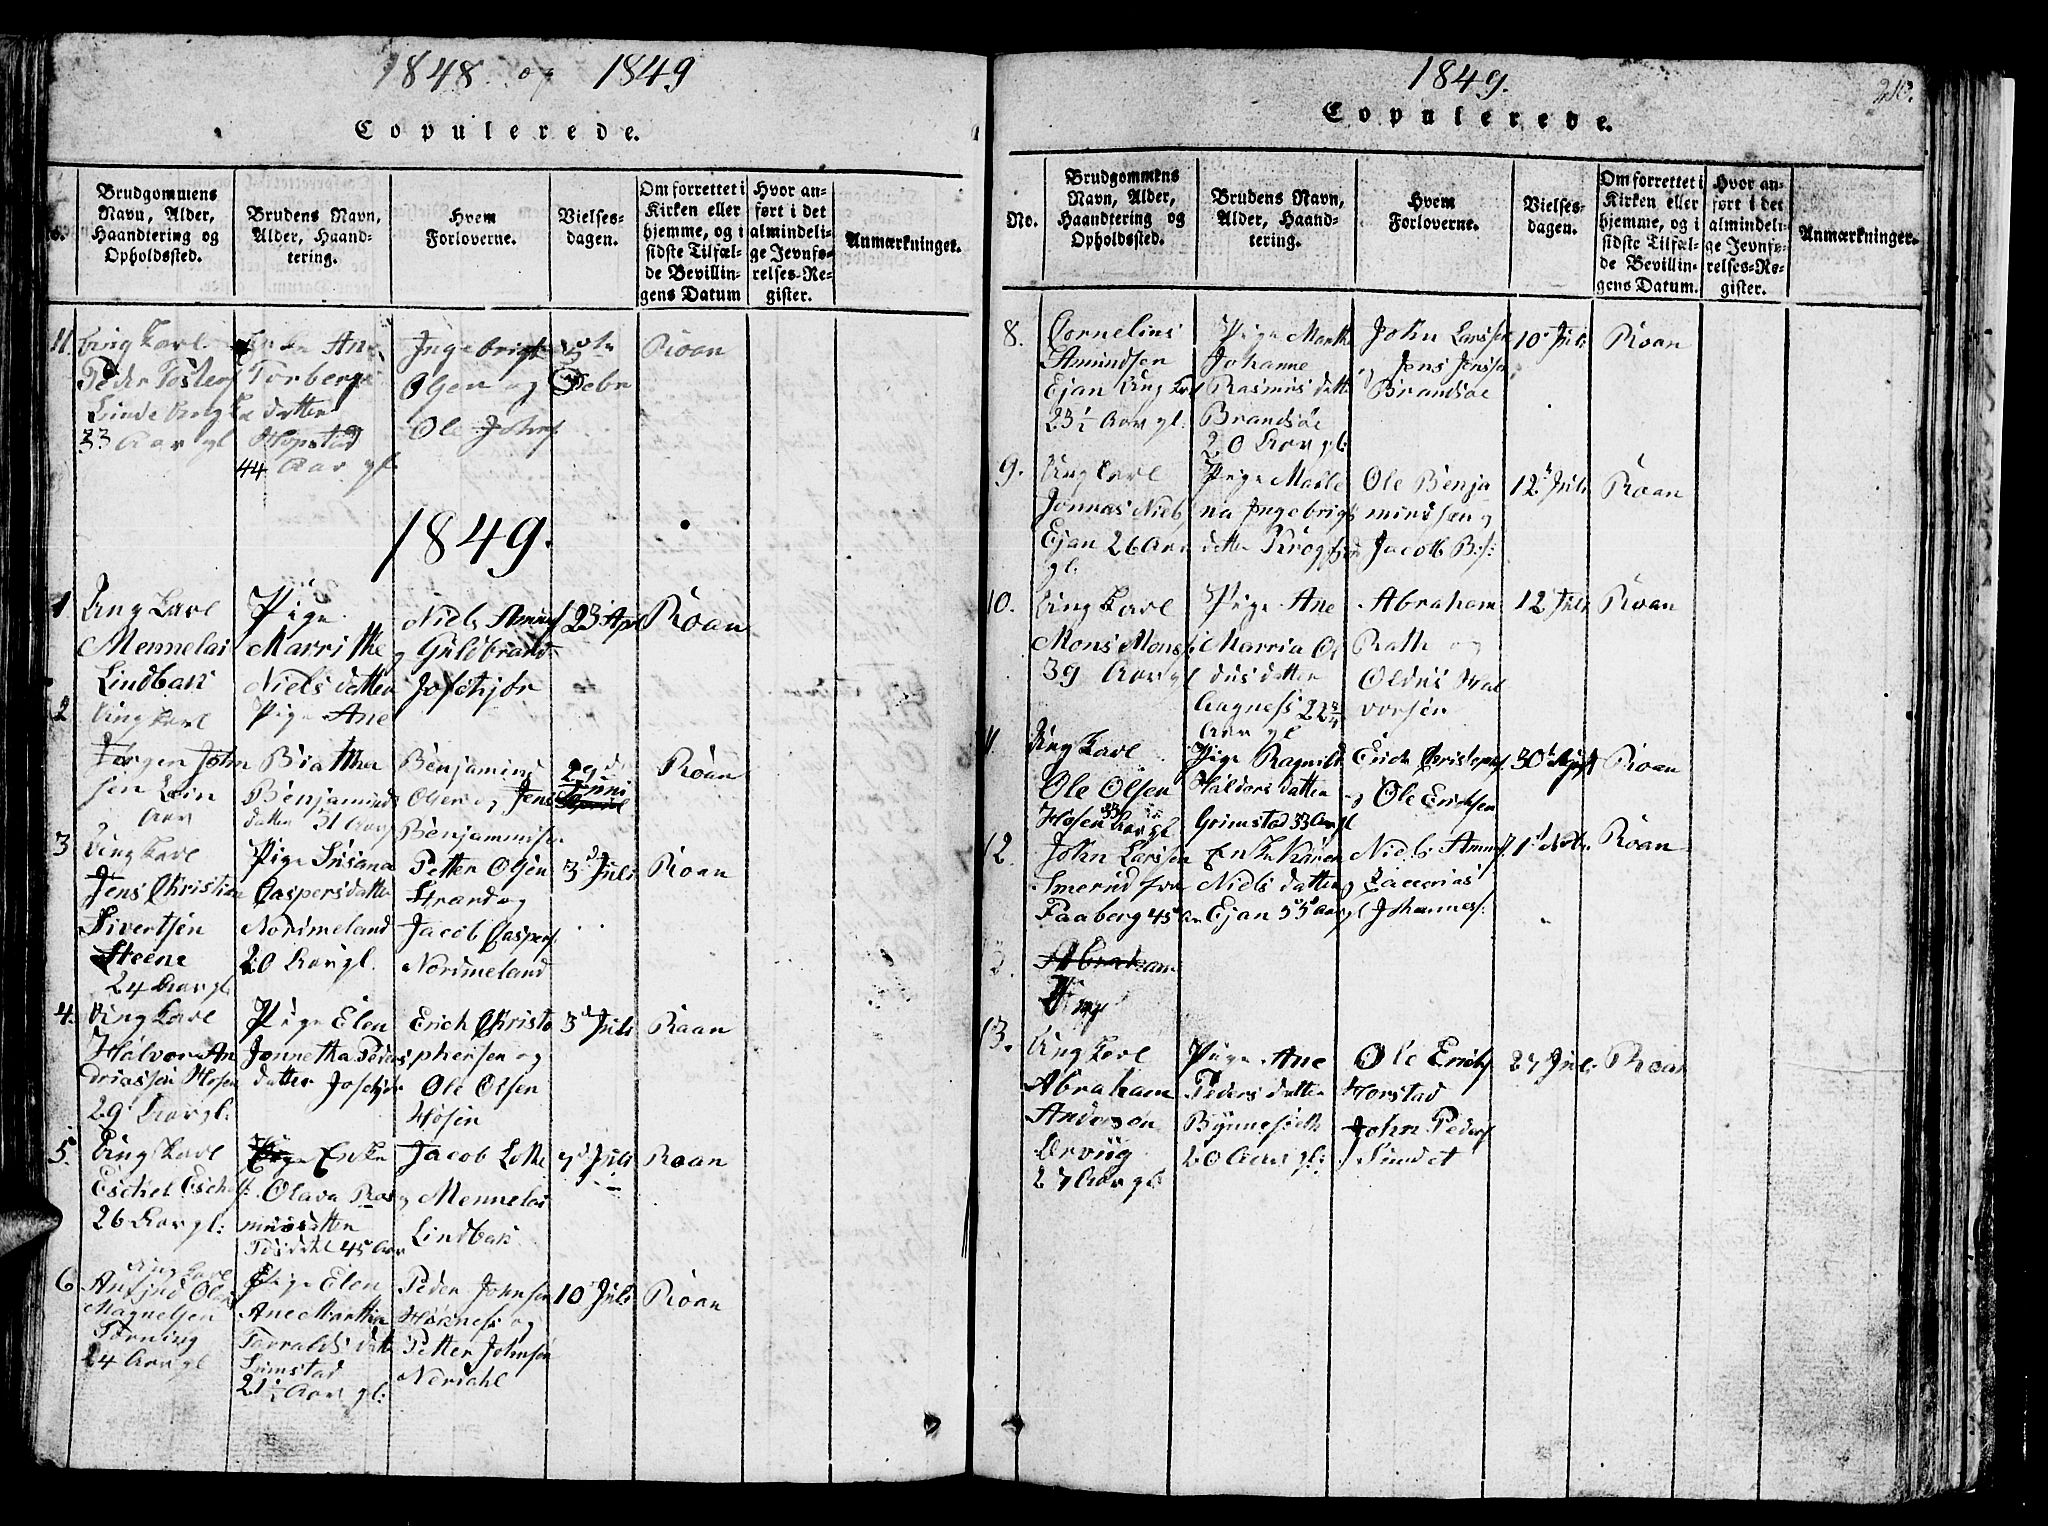 1848 og 1849
Copulerede.
Brudgommens Navn, Alder, Haandtering og Opholdssted.
Brudens Navn, Alder, Haandtering.
Hvem Forloverne.
Vielsesdagen.
Om forrettet i Kirken eller hjemme, og i sidste Tilfælde Bevillingens Datum
Hvor anført i det almindelige Jevnførelses-Register.
Anmærkninger.
11. Ung Karl
Peder
33 Aar gl
Enke Ane
Torbergs
datter
Hopstad
44 Aar gl.
Ingebrigt
Olsen og
Ole Johns
Debr
Roan
1849.
1 Ung Karl
Mennelai
Lindbak
Pige
Marrithe
Niels datter
Niels Amunds
og Guldbrand
Josephsør
23 Apr
Roan
2 Ung Karl
Jørgen John
sen
Aar
Pige Ane
Biattha
Benjamins
datter 31 Aar
Benjamins
Olsen og Jens
Benjaminsen
29de
Juni
Roan
3 Ung Karl
Jens Christian
Sivertsen
Steene
24 Aar gl.
Pige Susana
Caspersdatter
Nordmeland
20 Aar gl.
Petter Olsen
Strand og
Jacob Caspers
Nordmeland
3d Juli
Roan
4. Ung Karl
Halvor An
driassen Hosen
29 Aar gl:
Pige Elen
Jonnetha Peders
datter
Erich Christo
phersen og
Ole Olsen
Hosen
3d Juli
Roan
5. Ung Karl
Eschel Eschels:
26 Aar gl:
Pige Enke
Olava Ras
musdatter
45 Aar
Jacob Lokke
og Mennelai
Lindbak
7d Juli
Roan
6 Ung Karl
Magnelsen
Torning
24 Aar gl
Pige Elen
Ane Martha
Torralds datt
Sumstad
21½ Aar gl:
Peder Johnsen
Høknes og
Petter Johnsen
Nerdahl
10 Juli
Roan
1849.
210.
Copulerede.
No.
Brudgommens Navn, Alder, Haandtering og Opholdssted.
Brudens Navn, Alder, Haandtering.
Hvem Forloverne.
Vielsesdagen.
Om forrettet i Kirken eller hjemme, og i sidste Tilfælde Bevillingens Datum.
Hvor anført i det almindelige Jevnførelses-Register.
Anmærkninger.
8. Cornelius
Amundsen
Ejan Ung Karl
23½ Aar gl.
Pige Marth
Johanne
Rasmus datte
Brandsøe
20 Aar gl.
John Larssen
og Jens Jenssen
Brandsøe
10 Juli
Roan
9. Ung Karl
Jonnas Niels
Ejan 26 Aar
gl.
Pige Malle
na Ingebrigts
datter Krogfjor
Ole Benja
minssen og
Jacob
12 Juli
Roan
10. Ung Karl
Mons Mons
39 Aar gl
Pige Ane
Marria Ol
dus datter
Aagness 22¾
Aar gl
Abraham
Rath og
Oldus Hal
vorsen
12 Juli
Roan
11 Ung Karl
Ole Olsen
Hosen 33 Aar gl
Pige Ragnild
Haldors datter
Grimstad 33 Aar gl
Erich Christophs
og Ole Erichsen
30
Roan
12. John Larssen
Smerud fra
Faaberg 45 Aar
Enke Karen
Niels datter
Ejan 55 Aar gl
Niels Amunds
og Zacarias
Johanness:
1d Nobr.
Roan
3. Abraham
13. Ung Karl
Abraham
Anderson
Ørviig
27 Aar gl
Pige Ane
Peders datter
20 Aar gl:
Ole Erichs
Horstad
John Peders
Sundet
27 Juli
Roan